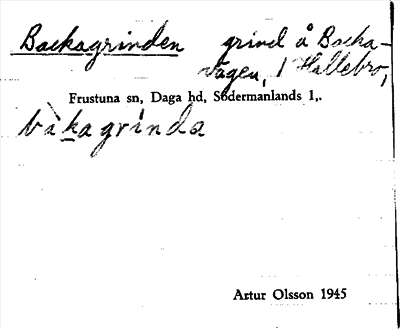 Backagrinden grind å Backa-
vägen, i Hallebro,
Frustuna sn, Daga hd, Södermanlands l,.
bàkagrinda
Artur Olsson 1945